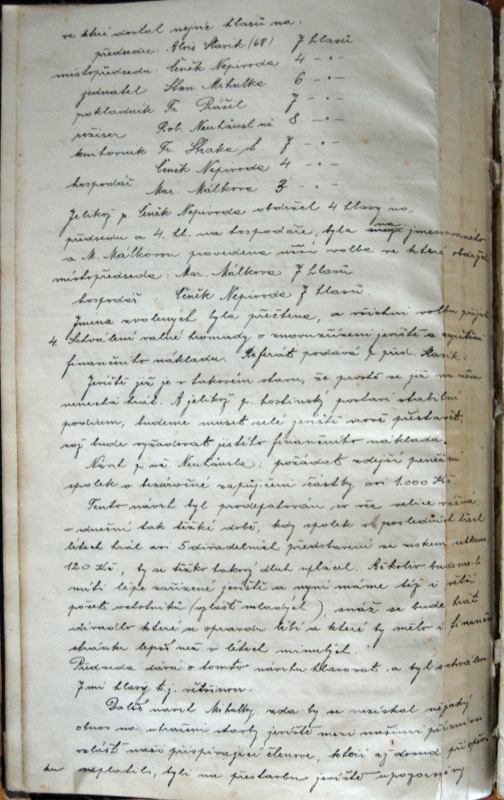 ve které dostal nejvíc hlasů na:
předseda: Alois Slavík (68) 7 hlasů
místopředseda: Čeněk Nepivoda 4 – " –
jednatel Stan. Mihulka 6 – " –
pokladník Fr. Prášil 7 – " –
režiser Rob. Neuhäusl ml 8 – " –
knihovník Fr. Straka 7 – " –
Čeněk Nepivoda 4 – " –
hospodář
Mar. Málkova 3 – " –
Jelikož p. Čeněk Nepivoda obdržel 4 hlasy na
předsedu a 4. hl. na hospodáře, byla na jmenovaného
a M. Málkovou provedena užší volba ve které obdržel
místopředseda: Mar. Málkova 7 hlasů
hospodář Čeněk Nepivoda 7 hlasů
Jmena zvolených byla přečtena, a všichni volbu přijali
4. Schválení valné hromady o znovuzřízení jeviště a
finančního nákladu. Referát podává p. před. Slavík:
Jeviště již je v takovém stavu, že prostě se již na něm
nenechá hrát. A jelikož p. hostinský postaví stabilní
podium, budeme muset celé jeviště nově přestavět,
což bude vyžadovat jistého finančního nákladu.
Návrh p. ml. Neuhäusla: požádat zdejší peněžní
spolek o bezúročné zapůjčení částky asi 1.000 Kč.
Tento návrh byl prodebatován co věc velice vážná
v dnešní tak těžké době, kdy spolek v posledních třech
létech hrál asi 5 divadelních představení se ziskem celkem
120 Kč, by se těžko takový dluh uplácel. Ačkoliv budeme-li
míti lépe zařízené jeviště a nyní máme též i větší
počet ochotníků (zvláště mladých), snáž se bude hrát
divadlo které se opravdu líbí a které by mělo i finanční
stránku lepší než v létech minulých.
Předseda dává o tomto návrhu hlasovat a byl schválen
7mi hlasy t.j. většinou.
Další návrh Mihulky, zda by se nezískal nějaký
obnos na uhrazení stavby jeviště mezi našimi příznivci
zvlášť naši přispívající členové, kteří až dosud
neplatili, byli na přestavbu jeviště upozorněny